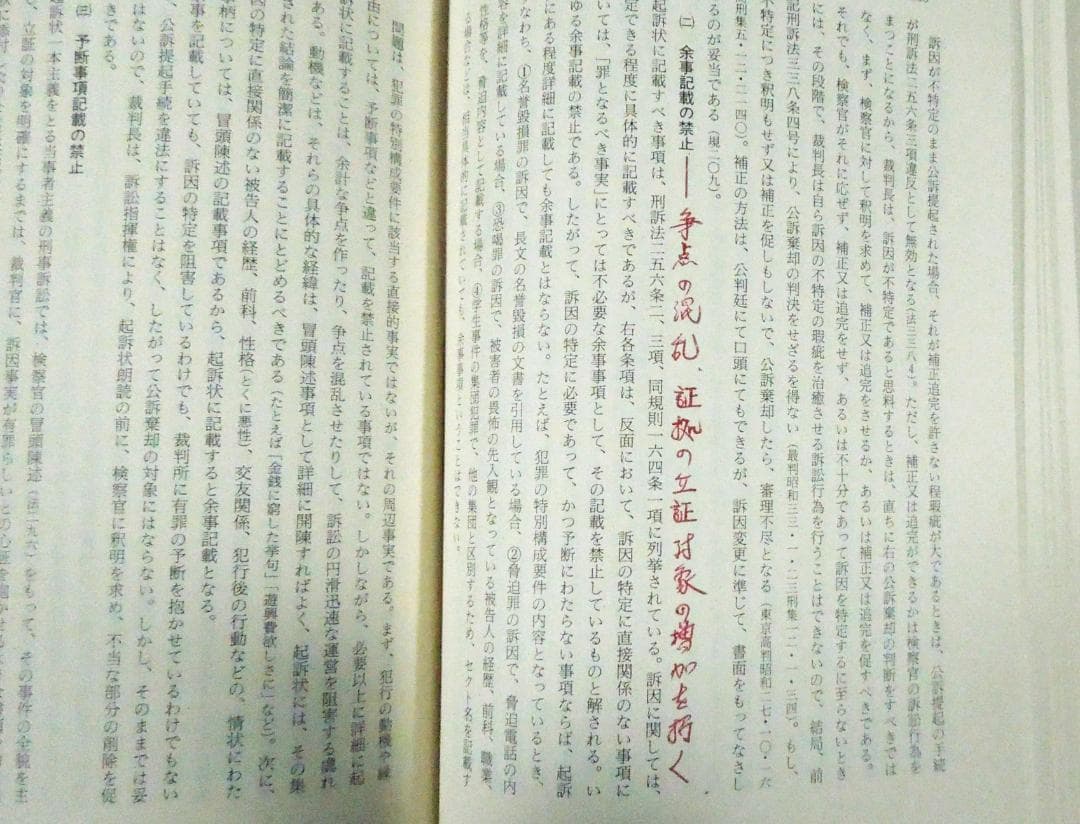 訴因が不特定のまま公訴提起された場合、それが補正追完を許さない程瑕疵が大であるときは、公訴提起の手続
が刑訴法二五六条三項違反として無効となる(法三三八4)。ただし、補正又は追完ができるかは検察官の訴訟行為を
まつことになるから、裁判長は、訴因が不特定であると思料するときは、直ちに右の公訴棄却の判断をすべきでは
なく、まず、検察官に対して釈明を求めて、補正又は追完をさせるか、あるいは補正又は追完を促すべきである。
それでも、検察官がそれに応ぜず、補正又は追完をせず、あるいは不十分であって訴因を特定するに至らないとき
には、その段階で、裁判長は自ら訴因の不特定の瑕疵を治癒させる訴訟行為を行うことはできないので、結局、前
記刑訴法三三八条四号により、公訴棄却の判決をせざるを得ない(最判昭和三三・一・二三刑集一二・一・三四)。もし、
不特定につき釈明もせず又は補正を促しもしないで、公訴棄却したら、審理不尽となる(東京高判昭和二七・一〇・一六
刑集五・一二・二一四〇)。補正の方法は、公判廷にて口頭にてもできるが、訴因変更に準じて、書面をもってなさし
るのが妥当である(規二〇九)。
(二) 余事記載の禁止——争点の混乱、証拠の立証対象の増加を招く
起訴状に記載すべき事項は、刑訴法二五六条二、三項、同規則一六四条一項に列挙されている。訴因に関しては、
定できる程度に具体的に記載すべきであるが、右各条項は、反面において、訴因の特定に直接関係のない事項に
いては、「罪となるべき事実」にとっては不必要な余事事項として、その記載を禁止しているものと解される。い
ゆる余事記載の禁止である。したがって、訴因の特定に必要であって、かつ予断にわたらない事項ならば、起訴
にある程度詳細に記載しても余事記載とはならない。たとえば、犯罪の特別構成要件の内容となっているとき、
なわち、①名誉毀損罪の訴因で、長文の名誉毀損の文書を引用している場合、②脅迫罪の訴因で、脅迫電話の内
容を詳細に記載している場合、③恐喝罪の訴因で、被害者の畏怖の先入観となっている被告人の経歴、前科、職業、
性格等を、脅迫内容として記載する場合、④学生事件の集団犯罪で、他の集団と区別するため、セクト名を記載す
る場合などは、相当具体的に記載されていても、余事事項ということはできない。
問題は、犯罪の特別構成要件に該当する直接的事実ではないが、それの周辺事実である。まず、犯行の動機や縁
由については、予断事項などと違って、記載を禁止されている事項ではない。しかしながら、必要以上に詳細に起
訴状に記載することは、余計な争点を作ったり、争点を混乱させたりして、訴訟の円滑迅速な運営を阻害する虞れ
ある。動機などは、それらの具体的な経緯は、冒頭陳述事項として詳細に開陳すればよく、起訴状には、その集
された結論を簡潔に記載することにとどめるべきである(たとえば「金銭に窮した挙句」「遊興費欲しさに」など)。次に、
因の特定に直接関係のない被告人の経歴、前科、性格(とくに悪性)、交友関係、犯行後の行動などの、情状にわた
柄については、冒頭陳述の記載事項であるから、起訴状に記載すると余事記載となる。
事を記載していても、訴因の特定を阻害しているわけでも、裁判所に有罪の予断を抱かせているわけでもない
、公訴提起手続を違法にすることはなく、したがって公訴棄却の対象にはならない。しかし、そのままでは妥
はないので、裁判長は、訴訟指揮権により、起訴状朗読の前に、検察官に釈明を求め、不当な部分の削除を促
きである。
(三) 予断事項記載の禁止
起訴状一本主義をとる当事者主義の刑事訴訟では、検察官の冒頭陳述(法二九六)をもって、その事件の全貌を主
、立証の対象を明確にするまでは、裁判官に、訴因事実が有罪らしいとの心証を